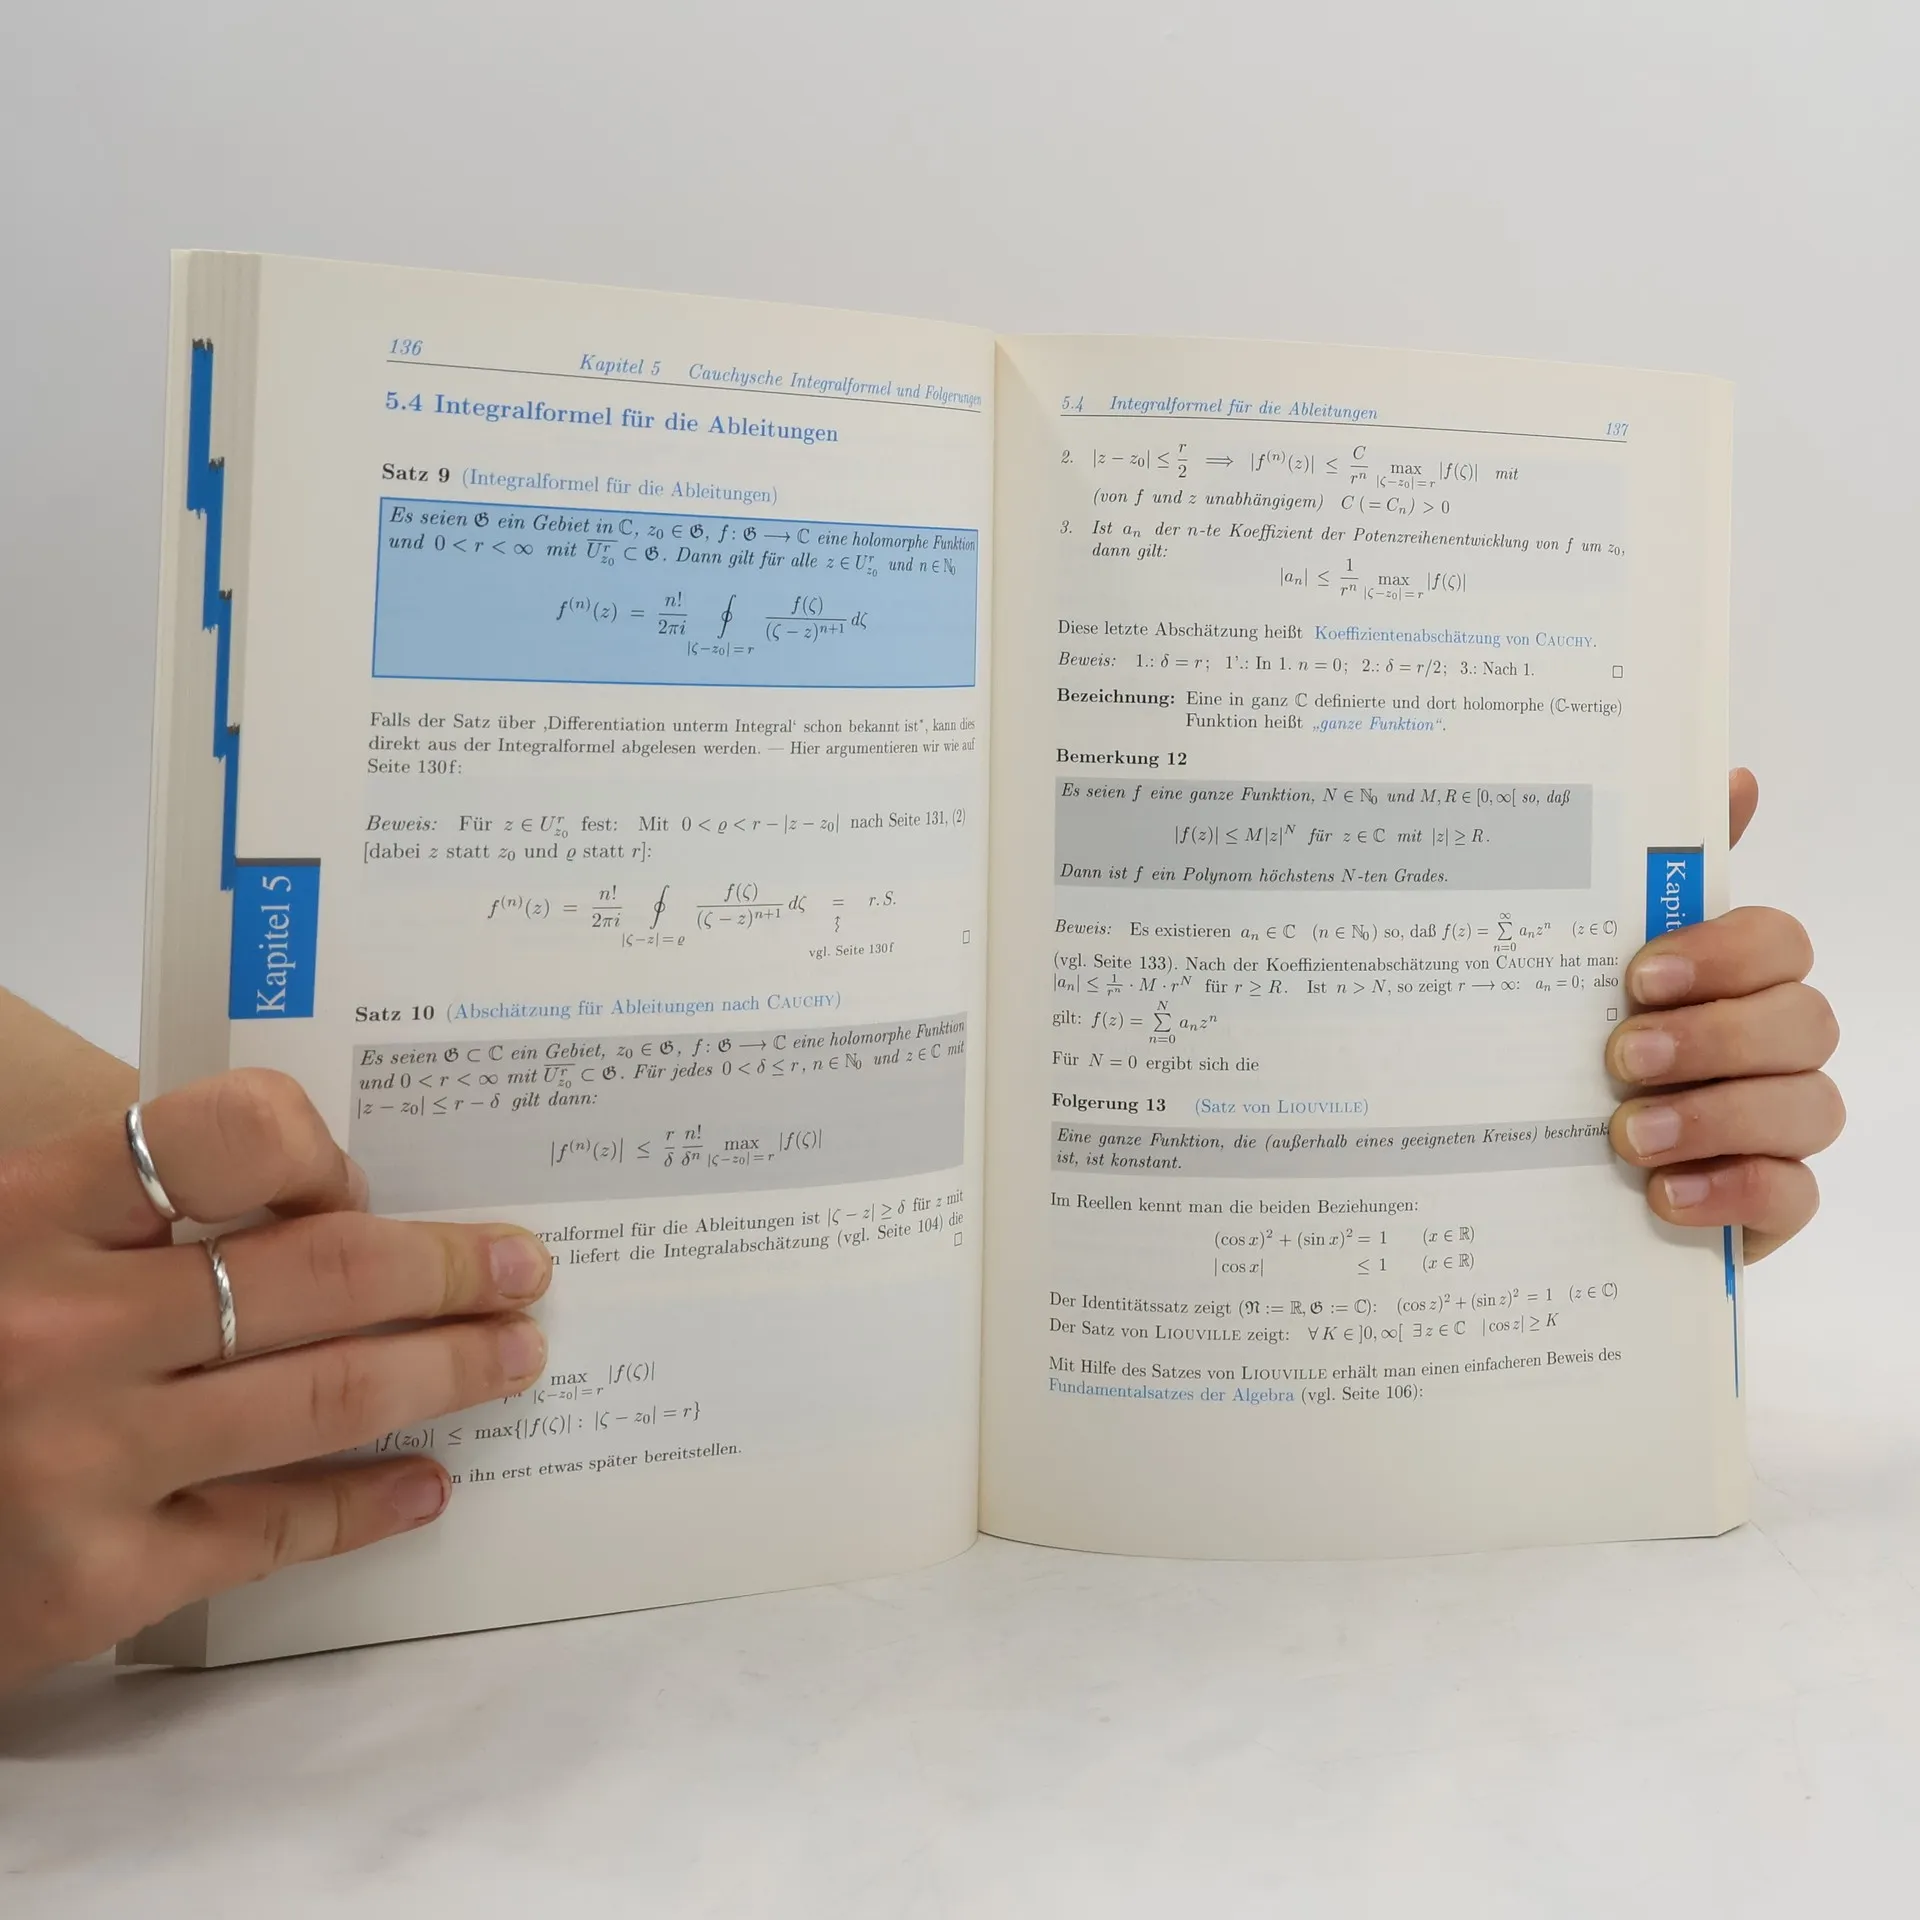 136
Kapitel 5 Cauchysche Integralformel und Folgerungen
5.4 Integralformel für die Ableitungen
Satz 9 (Integralformel für die Ableitungen)
Es seien 𝔊 ein Gebiet in ℂ, z₀ ∈ 𝔊, f: 𝔊 ⟶ ℂ eine holomorphe Funktion
und 0 < r < ∞ mit \overline{U_{z₀}^r} ⊂ 𝔊. Dann gilt für alle z ∈ U_{z₀}^r und n ∈ ℕ₀
f^{(n)}(z) = \frac{n!}{2πi} ∮_{|ζ−z₀|=r} \frac{f(ζ)}{(ζ − z)^{n+1}} dζ
Falls der Satz über ‚Differentiation unterm Integral‘ schon bekannt ist*, kann dies
direkt aus der Integralformel abgelesen werden. — Hier argumentieren wir wie auf
Seite 130f:
Beweis: Für z ∈ U_{z₀}^r fest: Mit 0 < ϱ < r − |z − z₀| nach Seite 131, (2)
[dabei z statt z₀ und ϱ statt r]:
f^{(n)}(z) = \frac{n!}{2πi} ∮_{|ζ−z|=ϱ} \frac{f(ζ)}{(ζ − z)^{n+1}} dζ = r. S.
vgl. Seite 130f □
Satz 10 (Abschätzung für Ableitungen nach CAUCHY)
Es seien 𝔊 ⊂ ℂ ein Gebiet, z₀ ∈ 𝔊, f: 𝔊 ⟶ ℂ eine holomorphe Funktion
und 0 < r < ∞ mit \overline{U_{z₀}^r} ⊂ 𝔊. Für jedes 0 < δ ≤ r, n ∈ ℕ₀ und z ∈ ℂ mit
|z − z₀| ≤ r − δ gilt dann:
|f^{(n)}(z)| ≤ \frac{r}{δ} \frac{n!}{δ^n} max_{|ζ−z₀|=r} |f(ζ)|
gralformel für die Ableitungen ist |ζ − z| ≥ δ für z mit
n liefert die Integralabschätzung (vgl. Seite 104) die
□
max_{|ζ−z₀|=r} |f(ζ)|
|f(z₀)| ≤ max{|f(ζ)| : |ζ − z₀| = r}
n ihn erst etwas später bereitstellen.
Kapitel 5
5.4 Integralformel für die Ableitungen
137
2. |z − z₀| ≤ \frac{r}{2} ⟹ |f^{(n)}(z)| ≤ \frac{C}{r^n} max_{|ζ−z₀|=r} |f(ζ)| mit
(von f und z unabhängigem) C (= C_n) > 0
3. Ist a_n der n-te Koeffizient der Potenzreihenentwicklung von f um z₀,
dann gilt:
|a_n| ≤ \frac{1}{r^n} max_{|ζ−z₀|=r} |f(ζ)|
Diese letzte Abschätzung heißt Koeffizientenabschätzung von CAUCHY.
Beweis: 1.: δ = r; 1'.: In 1. n = 0; 2.: δ = r/2; 3.: Nach 1. □
Bezeichnung: Eine in ganz ℂ definierte und dort holomorphe (ℂ-wertige)
Funktion heißt „ganze Funktion“.
Bemerkung 12
Es seien f eine ganze Funktion, N ∈ ℕ₀ und M, R ∈ [0, ∞[ so, daß
|f(z)| ≤ M|z|^N für z ∈ ℂ mit |z| ≥ R.
Dann ist f ein Polynom höchstens N-ten Grades.
Beweis: Es existieren a_n ∈ ℂ (n ∈ ℕ₀) so, daß f(z) = ∑_{n=0}^{∞} a_n z^n (z ∈ ℂ)
(vgl. Seite 133). Nach der Koeffizientenabschätzung von CAUCHY hat man:
|a_n| ≤ \frac{1}{r^n} · M · r^N für r ≥ R. Ist n > N, so zeigt r ⟶ ∞: a_n = 0; also
gilt: f(z) = ∑_{n=0}^{N} a_n z^n □
Für N = 0 ergibt sich die
Folgerung 13 (Satz von LIOUVILLE)
Eine ganze Funktion, die (außerhalb eines geeigneten Kreises) beschränk
ist, ist konstant.
Im Reellen kennt man die beiden Beziehungen:
(cos x)² + (sin x)² = 1 (x ∈ ℝ)
|cos x| ≤ 1 (x ∈ ℝ)
Der Identitätssatz zeigt (𝔑 := ℝ, 𝔊 := ℂ): (cos z)² + (sin z)² = 1 (z ∈ ℂ)
Der Satz von LIOUVILLE zeigt: ∀ K ∈ ]0, ∞[ ∃ z ∈ ℂ |cos z| ≥ K
Mit Hilfe des Satzes von LIOUVILLE erhält man einen einfacheren Beweis des
Fundamentalsatzes der Algebra (vgl. Seite 106):
Kapit